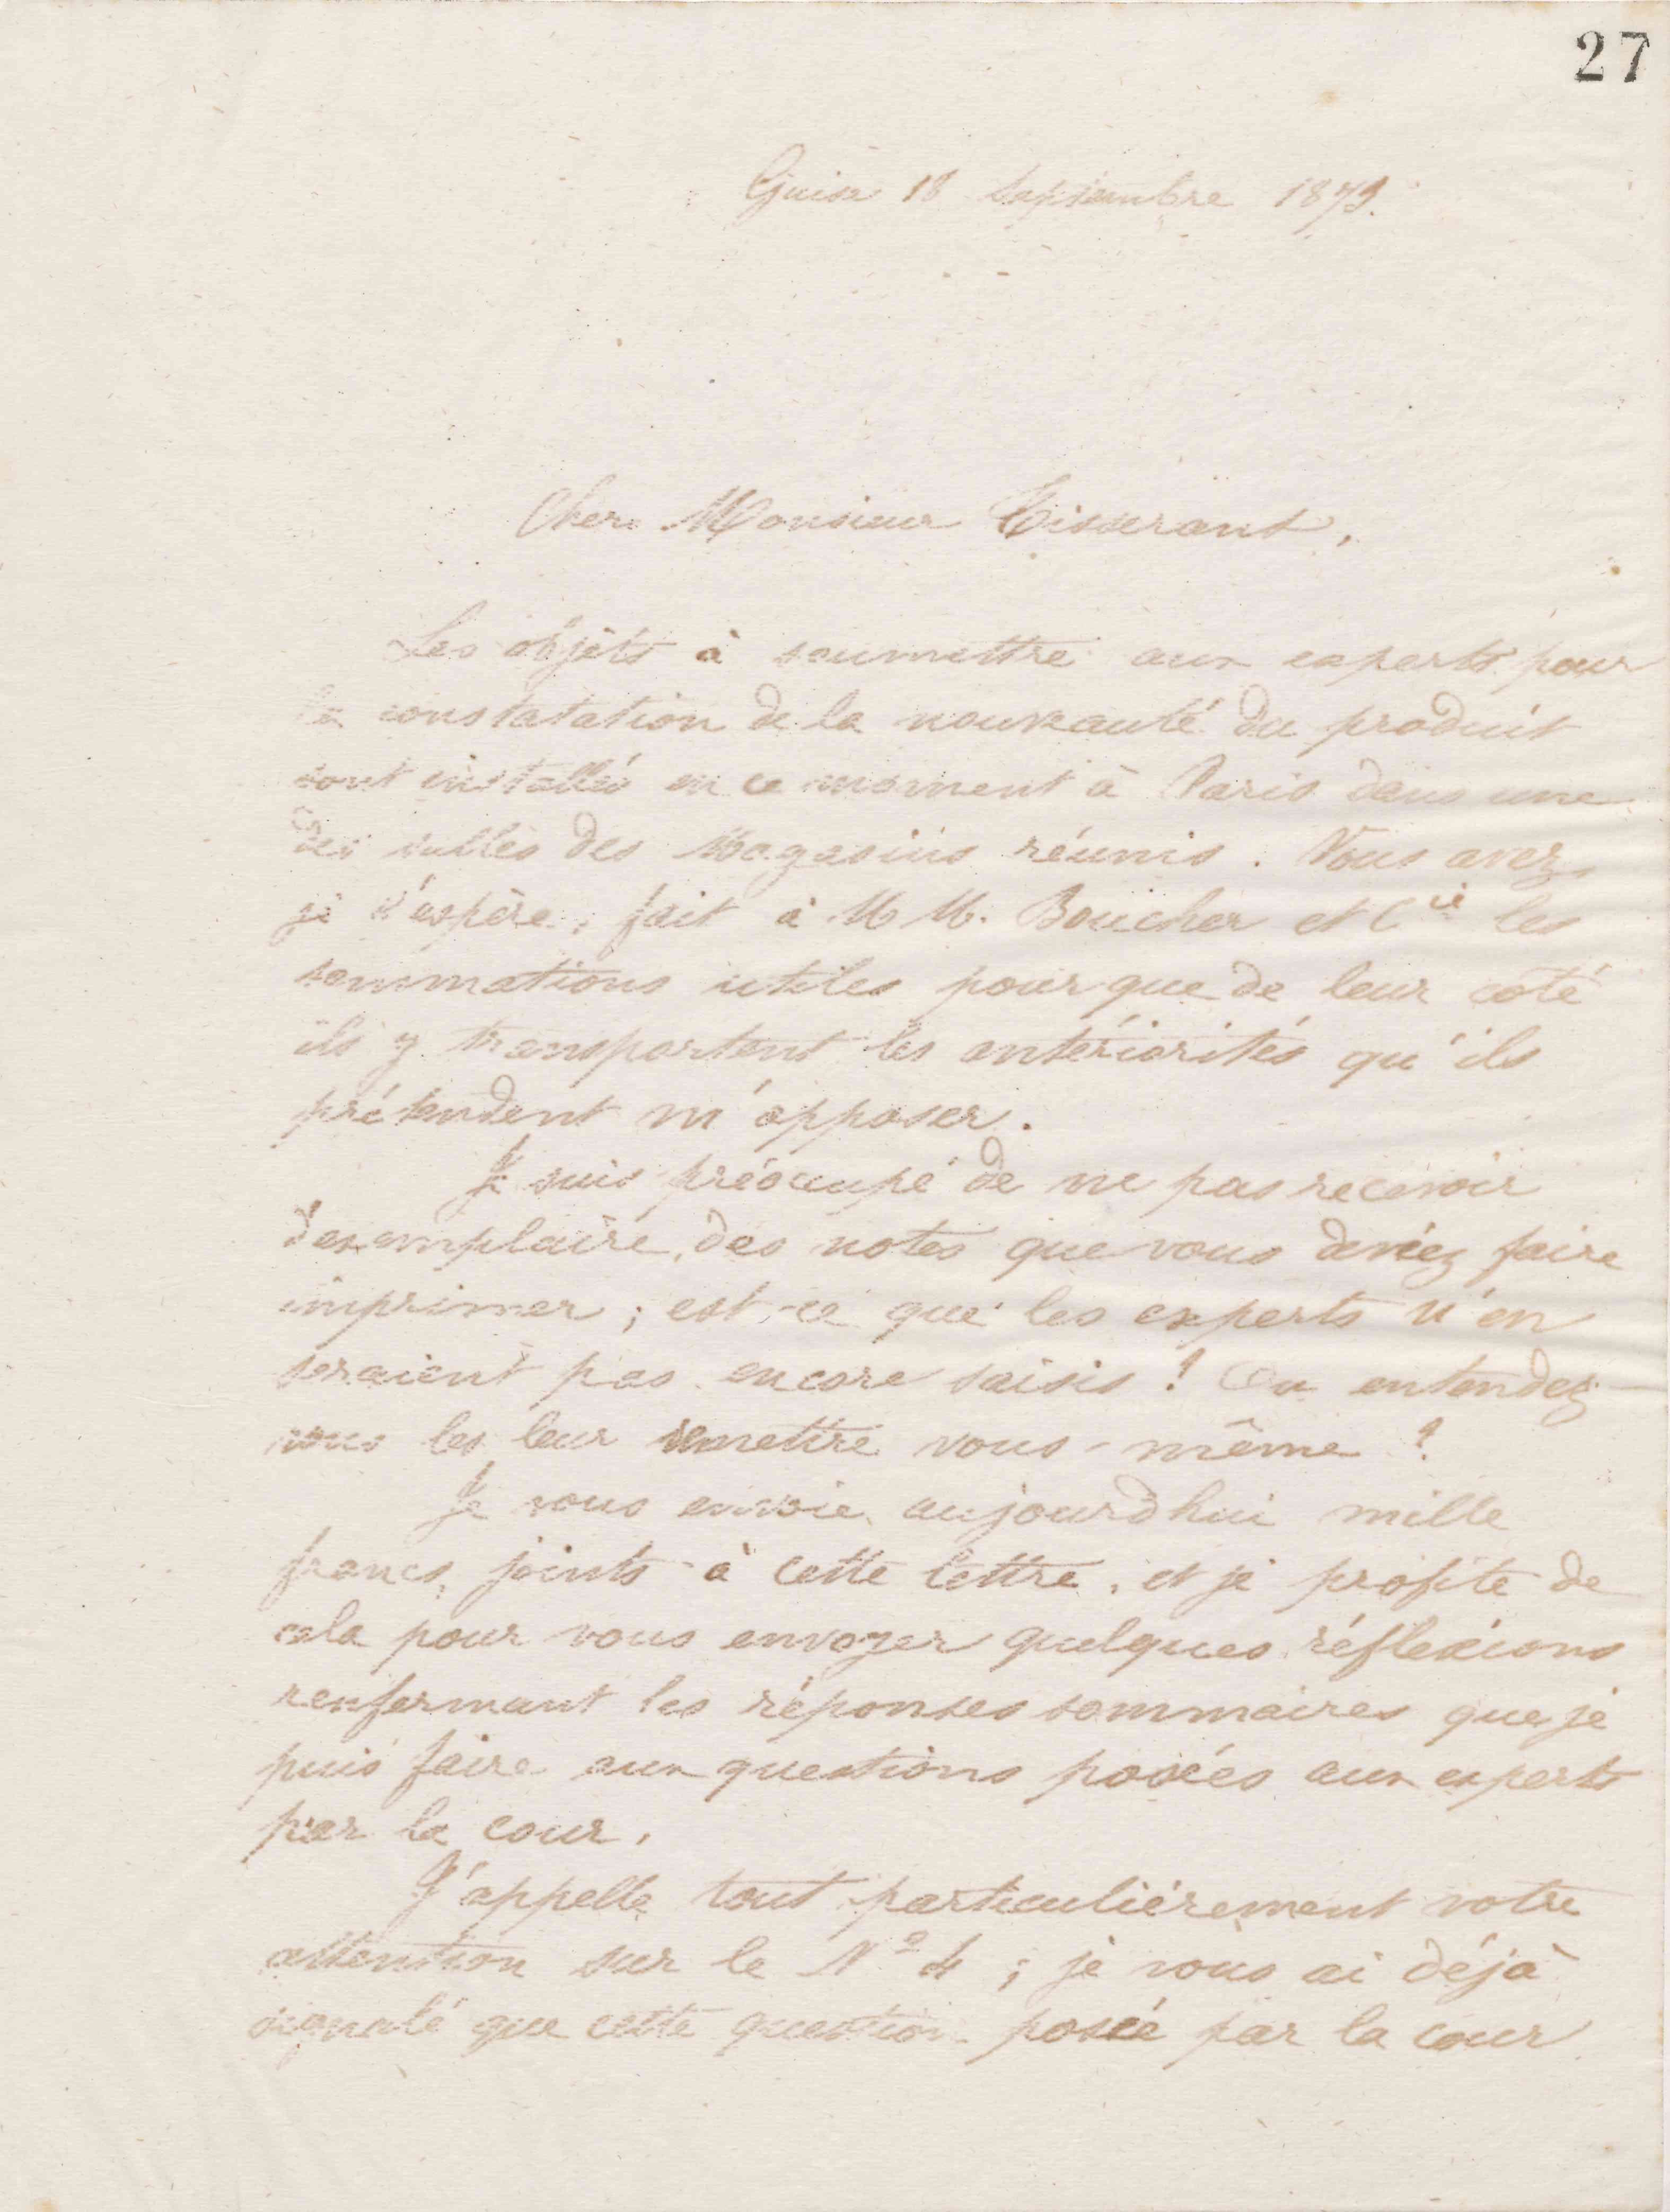 27
Guise 18 septembre 1873.
Cher Monsieur Tisserant,
Les objets à soumettre aux experts pour
la constatation de la nouveauté du produit
sont installés en ce moment à Paris dans une
des salles des Magasins réunis. Vous avez,
je l'espère, fait à M M. Boucher et Cie les
sommations utiles pour que de leur coté
ils y transportent les antériorités qu'ils
prétendent m'opposer.
Je suis préoccupé de ne pas recevoir
d'exemplaire, des notes que vous deviez faire
imprimer ; est-ce que les experts n'en
seraient pas encore saisis ! Ou entendez
vous les leur remettre vous-même ?
Je vous envoie aujourd'hui mille
francs, joints à cette lettre, et je profite de
cela pour vous envoyer quelques réflexions
renfermant les réponses sommaires que je
puis faire aux questions posées aux experts
par la cour.
J'appelle tout particulièrement votre
attention sur le No 4 ; je vous ai déjà
signalé que cette question posée par la cour